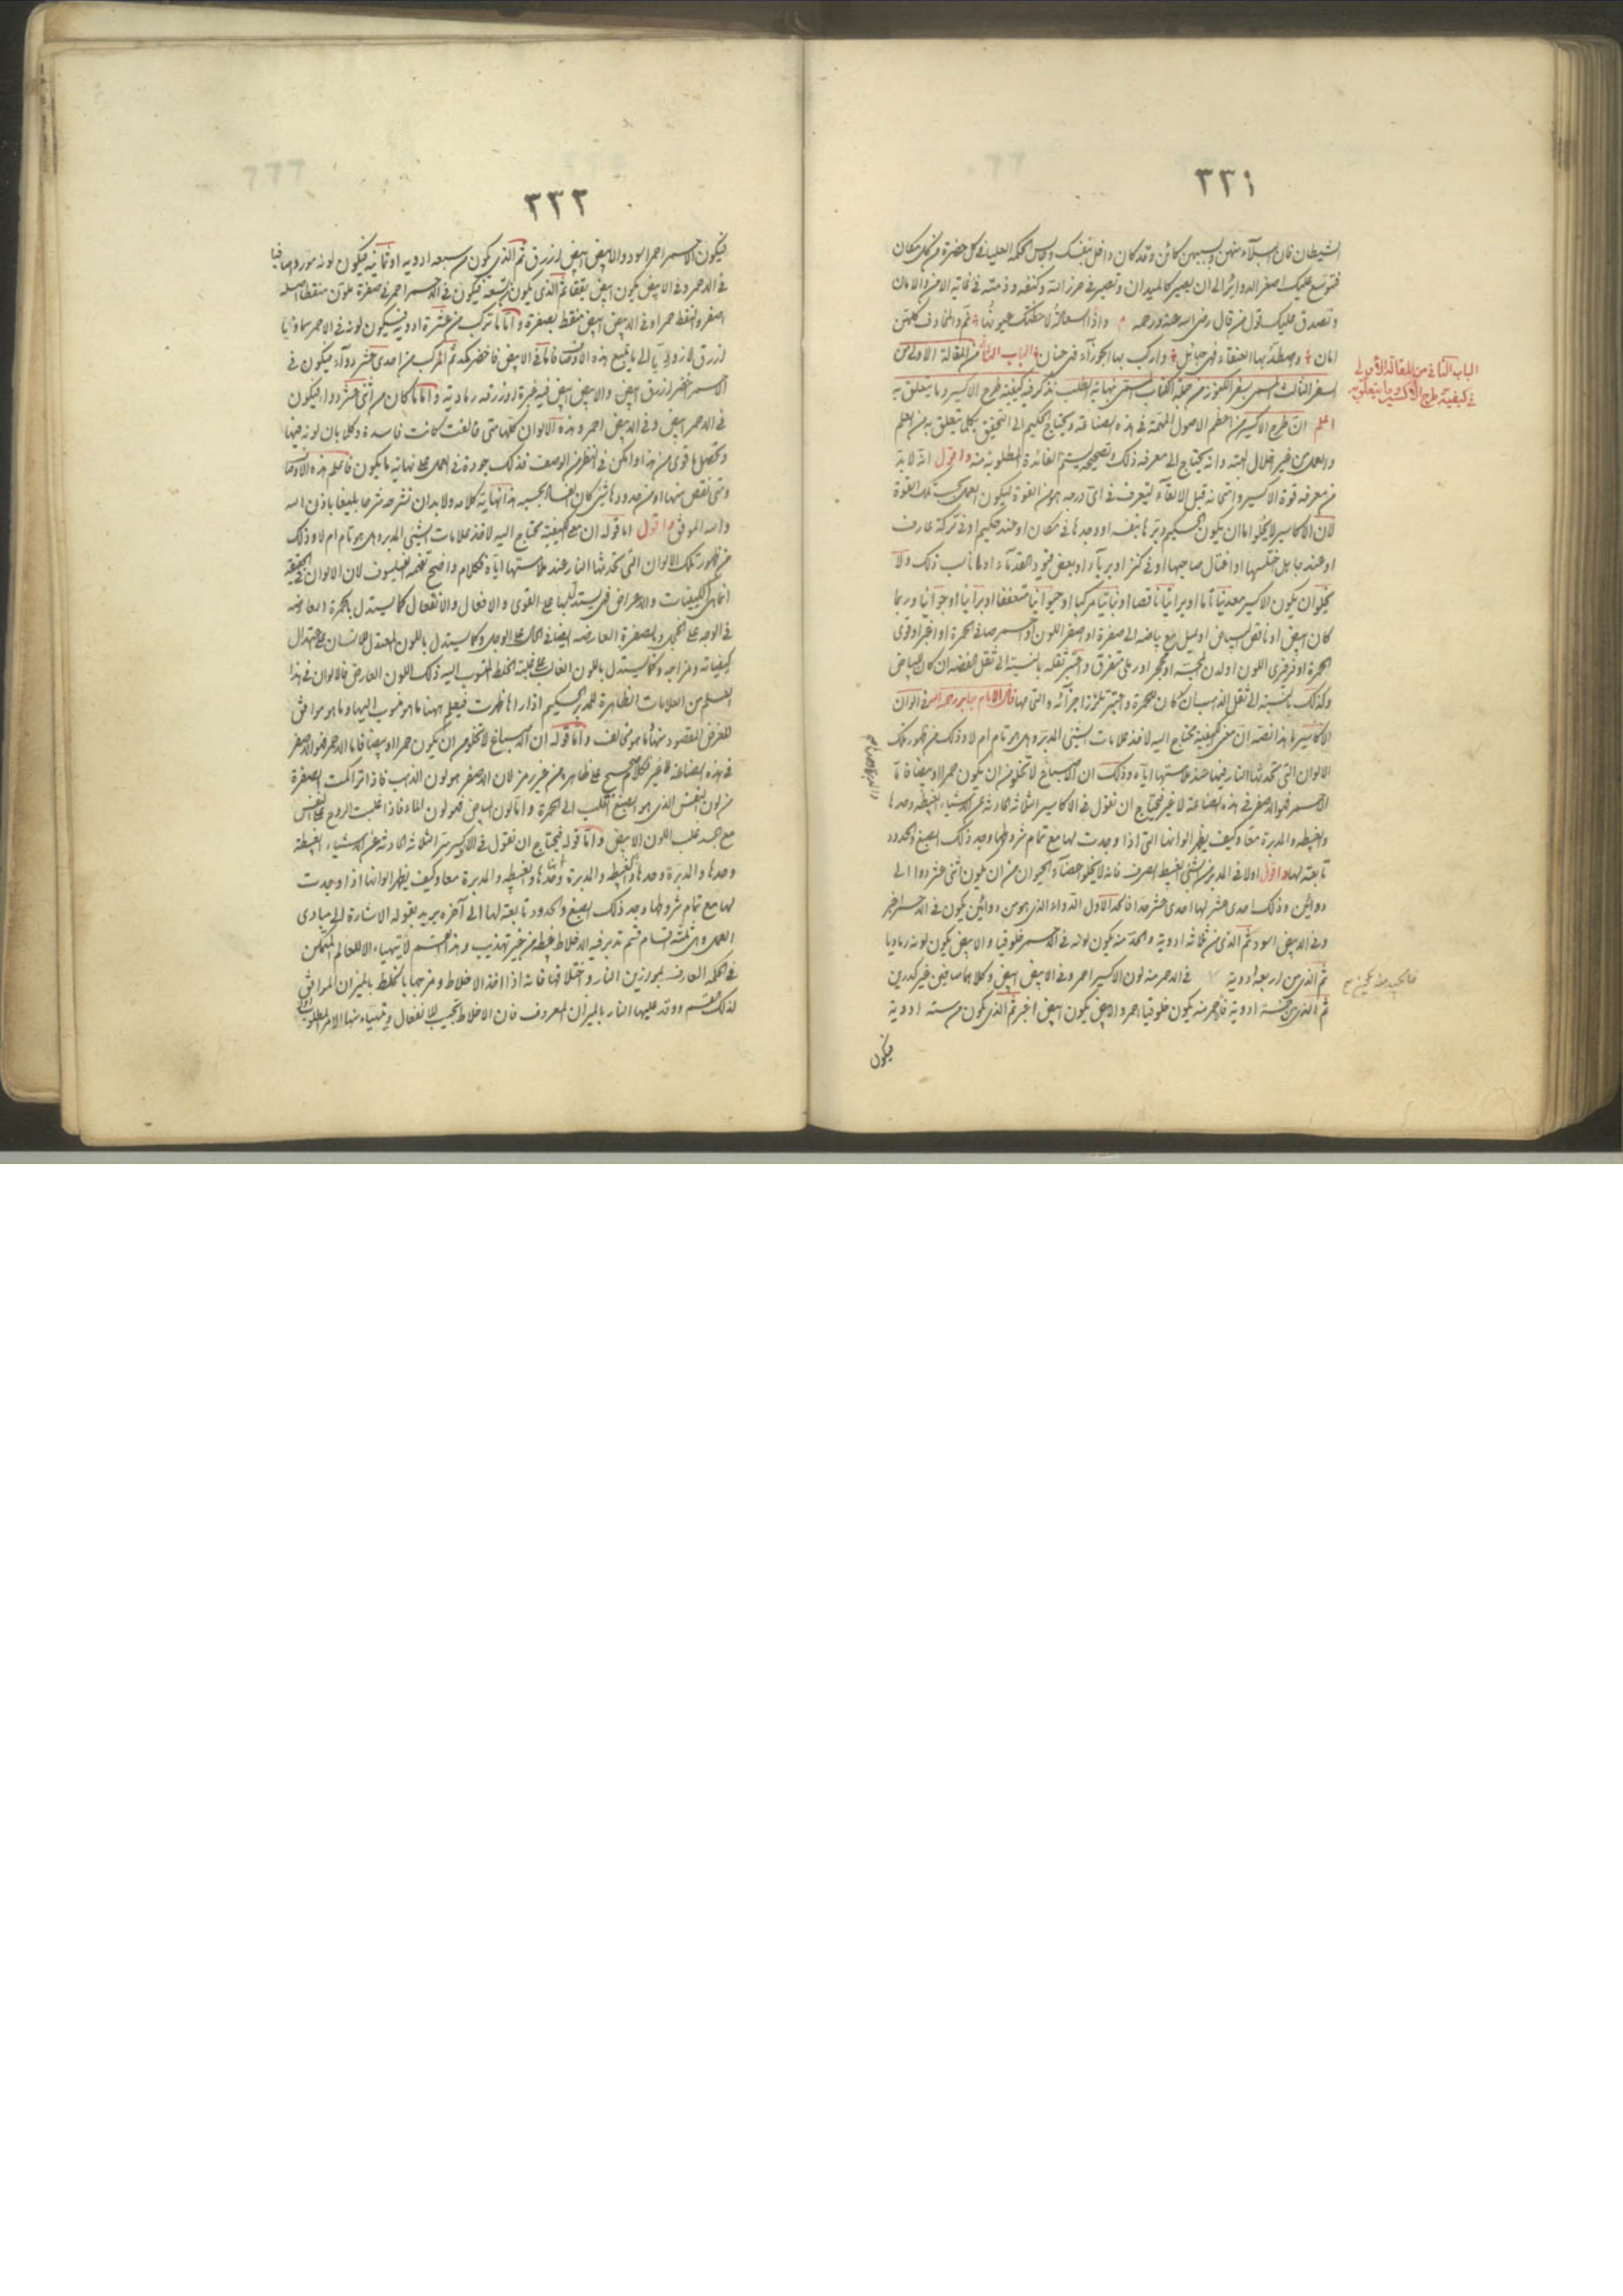 ٣٣١
الشيطان فان البلاء منهن وبسببهن كائن وقد كان داخل نفسك وجالس الحكمة العليا في كل حضرة من كل مكان
فتوسع عليك اصغر الدوائر الى ان يصير كالميدان وتصير في حرز الله وكنفه وذمته في غاية الامن والامان
وتصدق عليك قول من قال رضي الله عنه ورحمه واذا السعادة لاحظتك عيونها نم فالمخاوف كلهن
امان واصطد بها العنقاء فهي حبائل واركب بها الجوزاء فهي عنان الباب الثاني من المقالة الاولى من
السفر الثالث المسمى بسفر الكنوز من جملة الكتاب المسمى نهاية الطلب نذكر فيه كيفية طرح الاكسير وما يتعلق به
اعلم ان طرح الاكسير من اعظم الاصول المهمة في هذه الصناعة ويحتاج الحكيم الى التحقيق بكلما يتعلق به من العلم
والعمل من غير اخلال البتة وانه يحتاج الى معرفة ذلك وتصحيحه ليستتم الفائدة المطلوبة منه واقول انه لا بد
من معرفة قوة الاكسير وامتحانه قبل الالقاء ليتعرف في اي درجة هو من القوة ليكون العمل بحسب تلك القوة
لان الاكاسير لا يخلو اما ان يكون الحكيم دبرها بنفسه او وجدها في مكان او عند حكيم او في تركة عارف
او عند جاهل اختلسها او اغتال صاحبها او في كنز او بربا او بعض قبور القدماء او ما ناسب ذلك ولا
يخلو ان يكون الاكسير معدنيا تاما او برانيا ناقصا او نباتيا مركبا او حيوانيا متعففا او برانيا او جوانيا وربما
كان ابيض او ناقص البياض او يميل مع بياضه الى صفرة او اصفر اللون او احمر صافي الحمرة او اغبر او قوي
الحمرة او فرفري اللون او لدن المجسة او متحجر او رملي متفرق واعتبر ثقله بالنسبة الى ثقل الفضة ان كان للبياض
وكذلك بالنسبة الى ثقل الذهب ان كان للحمرة واعتبر تلزز اجزائه والتي مها قال الامام جابر رحمه الله في الوان
الاكاسير ما هذا نصه ان معنى الكيفية تحتاج اليه لاخذ علامات الشيء المدبر وهل هو تام ام لا وذلك من ظهور تلك
الالوان التي تحدثها النار فيها عند ملامستها اياه وذلك ان الاصباغ لا تخلو من ان يكون حمرا او بيضا فاما
الاحمر فهو الاصفر في هذه الصناعة لا غير فيحتاج ان نقول في الاكاسير الثلاثة الحادثة عن الاشياء الغبيطة وحدها
والغبيطة والمدبرة معا وكيف يظهر الوانها التي اذا وجدت لها مع تمام شروطها وجد ذلك الصبغ والحدود
تابعة لها واقول اولا في المدبر من الشيء الغبيط الصرف فانه لا يخلو اعضاء الحيوان من ان يكون اثني عشر دواء الى
دوائين وذلك احدى عشر لها احدى عشر حدا فالحد الاول الدواء الذي هو من دوائين يكون في الاحمر اخضر
وفي الابيض اسود ثم الذي من ثلاثة ادوية والحد منه يكون لونه في الاحمر خلوقيا والابيض يكون لونه رماديا
ثم الذي من اربعة ادوية في الاحمر منه لون الاكسير احمر وفي الابيض ابيض وكلاهما صافيين غير كدرين
ثم الذي من خمسة ادوية فالاحمر منه يكون خلوقيا احمر والابيض يكون ابيض اغبر ثم الذي يكون من ستة ادوية
فيكون
الباب الثاني من المقالة الاولى
في كيفية طرح الاكسير وما يتعلق به
٣٣٢
فيكون الاحمر احمر اسود والابيض ابيض ازرق ثم الذي يكون من سبعة ادوية او ثمانية فيكون لونه موردا صافيا
في الاحمر وفي الابيض يكون ابيض يققا ثم الذي يكون من تسعة فيكون في الاحمر احمر في صفرة ملون منقطا اصله
اصفر والنقط حمر وفي الابيض ابيض منقط بصفرة واما ما تركب من عشرة ادوية فيكون لونه في الاحمر سماويا
ازرق لازورديا الى ما يتبع هذه الاوصاف فاما في الابيض فاخضر كمد ثم المركب من احدى عشر دواء فيكون في
الاحمر اخضر ازرق ابيض والابيض ابيض فيه غبرة او زرقة رمادية واما ما كان من اثني عشر دواء فيكون
في الاحمر ابيض وفي الابيض احمر وهذه الالوان كلها متى خالفت كانت فاسدة وكلما بان لونه فيها
وتحصل ما قوي من هذا وامكن في النظر من الوصف فذلك جودة في العمل على نهاية ما يكون فاعلم هذه الاوصاف
ومتى نقص منها او من حدودها شيء كان الفساد بحسبه هذا نهاية كلامه ولا بد ان نشرحه شرحا بليغا باذن الله
والله الموفق واقول اما قوله ان معنى الكيفية تحتاج اليه لاخذ علامات الشيء المدبر وهل هو تام ام لا وذلك
من ظهور تلك الالوان التي تحدثها النار عند ملامستها اياه فكلام واضح تفهمه الفيلسوف لان الالوان في الحقيقة
انما هي الكيفيات والاعراض فهي يستدل بها على القوى والافعال والانفعال كما يستدل بالحمرة العارضة
في الوجه على الخجل والصفرة العارضة ايضا في الحال على الوجل وكما يستدل باللون المعتدل للانسان على اعتدال
كيفياته ومزاجه وكما يستدل باللون الغالب على غلبة الخلط المنسوب اليه ذلك اللون العارض فالالوان في هذا
العلم من العلامات الظاهرة للمدبر الحكيم اذا راها ظهرت فيعلم ههنا ما هو منسوب اليها وما هو موافق
للغرض المقصود منها وما هو مخالف واما قوله ان الاصباغ لا تخلو من ان يكون حمرا او بيضا فاما الاحمر فهو الاصفر
في هذه الصناعة لا غير فكلام صحيح على ظاهره من غير رمز لان الاصفر هو لون الذهب فاذا تراكمت الصفرة
من لون النفس الذي هو الصبغ انقلب الى الحمرة واما لون البياض فهو لون الماء فاذا غلبت الروح على النفس
مع الجسد غلب اللون الابيض واما قوله فيحتاج ان نقول في الاكسير الثلاثة الحادثة عن الاشياء الغبيطة
وحدها والمدبرة وحدها والغبيطة والمدبرة معا وكيف يظهر الوانها اذا وجدت
لها مع تمام شروطها وجد ذلك الصبغ والحدود تابعة لها الى آخره يريد بقوله الاشارة الى مبادي
العمل وهي ثلثة اقسام قسم تدبر فيه الاخلاط غبيطة من غير تهذيب وهذا القسم لا يتهياء الا للعالم المتمكن
في الحكمة العارف بموازين النار واختلافها فانه اذا اخذ الاخلاط ومزجها بالخلط بالميزان الموافق
لذلك القسم ووقد عليها النار بالميزان المعروف فان الاخلاط تجيب للانفعال ويتهياء منها الامر المطلوب